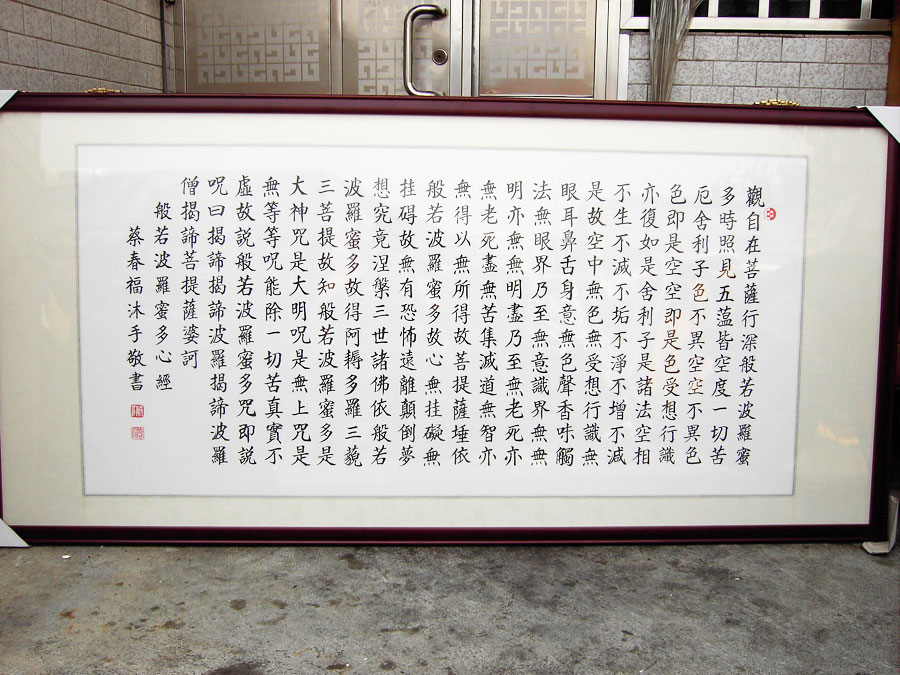 觀自在菩薩行深般若波羅蜜
多時照見五薀皆空度一切苦
厄舍利子色不異空空不異色
色即是空空即是色受想行識
亦復如是舍利子是諸法空相
不生不滅不垢不淨不增不減
是故空中無色無受想行識無
眼耳鼻舌身意無色聲香味觸
法無眼界乃至無意識界無無
明亦無無明盡乃至無老死亦
無老死盡無苦集滅道無智亦
無得以無所得故菩提薩埵依
般若波羅蜜多故心無挂礙無
挂碍故無有恐怖遠離顛倒夢
想究竟涅槃三世諸佛依般若
波羅蜜多故得阿耨多羅三藐
三菩提故知般若波羅蜜多是
大神咒是大明呪是無上咒是
無等等呪能除一切苦真實不
虛故説般若波羅蜜多咒即説
呪曰揭諦揭諦波羅揭諦波羅
僧揭諦菩提薩婆訶
般若波羅蜜多心經
蔡春福沐手敬書